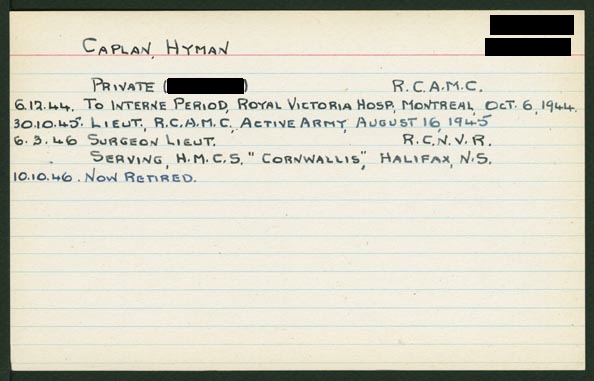 CAPLAN, HYMAN
PRIVATE ( ) R.C.A.M.C.
6.12.44. TO INTERNE PERIOD, ROYAL VICTORIA HOSP, MONTREAL, OCT. 6, 1944.
30.10.45. LIEUT., R.C.A.M.C., ACTIVE ARMY, AUGUST 16, 1945
6.3.46 SURGEON LIEUT. R.C.N.V.R.
SERVING, H.M.C.S. "CORNWALLIS", HALIFAX, N.S.
10.10.46. NOW RETIRED.